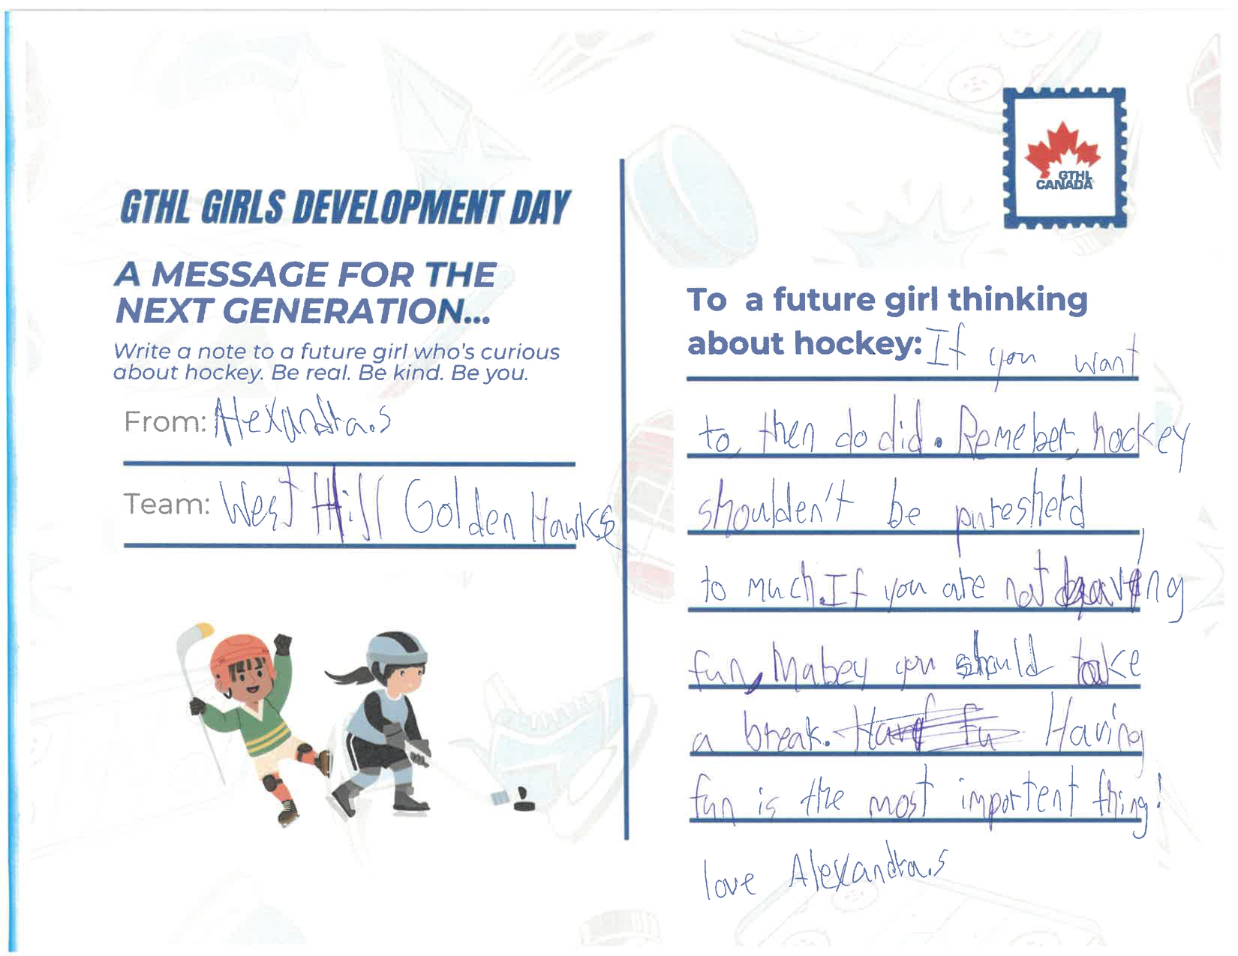 GTHL GIRLS DEVELOPMENT DAY
A MESSAGE FOR THE
NEXT GENERATION...
Write a note to a future girl who's curious
about hockey. Be real. Be kind. Be you.
From: Alexandra.S
Team: West Hill Golden Hawks
GTHL
CANADA
To a future girl thinking
about hockey: If you want
to, then do did. Remeber, hockey
shouldn't be puresheld
to much. If you are not having
fun, Mabey you should take
a break. Having
fun is the most importent thing!
love Alexandra.S